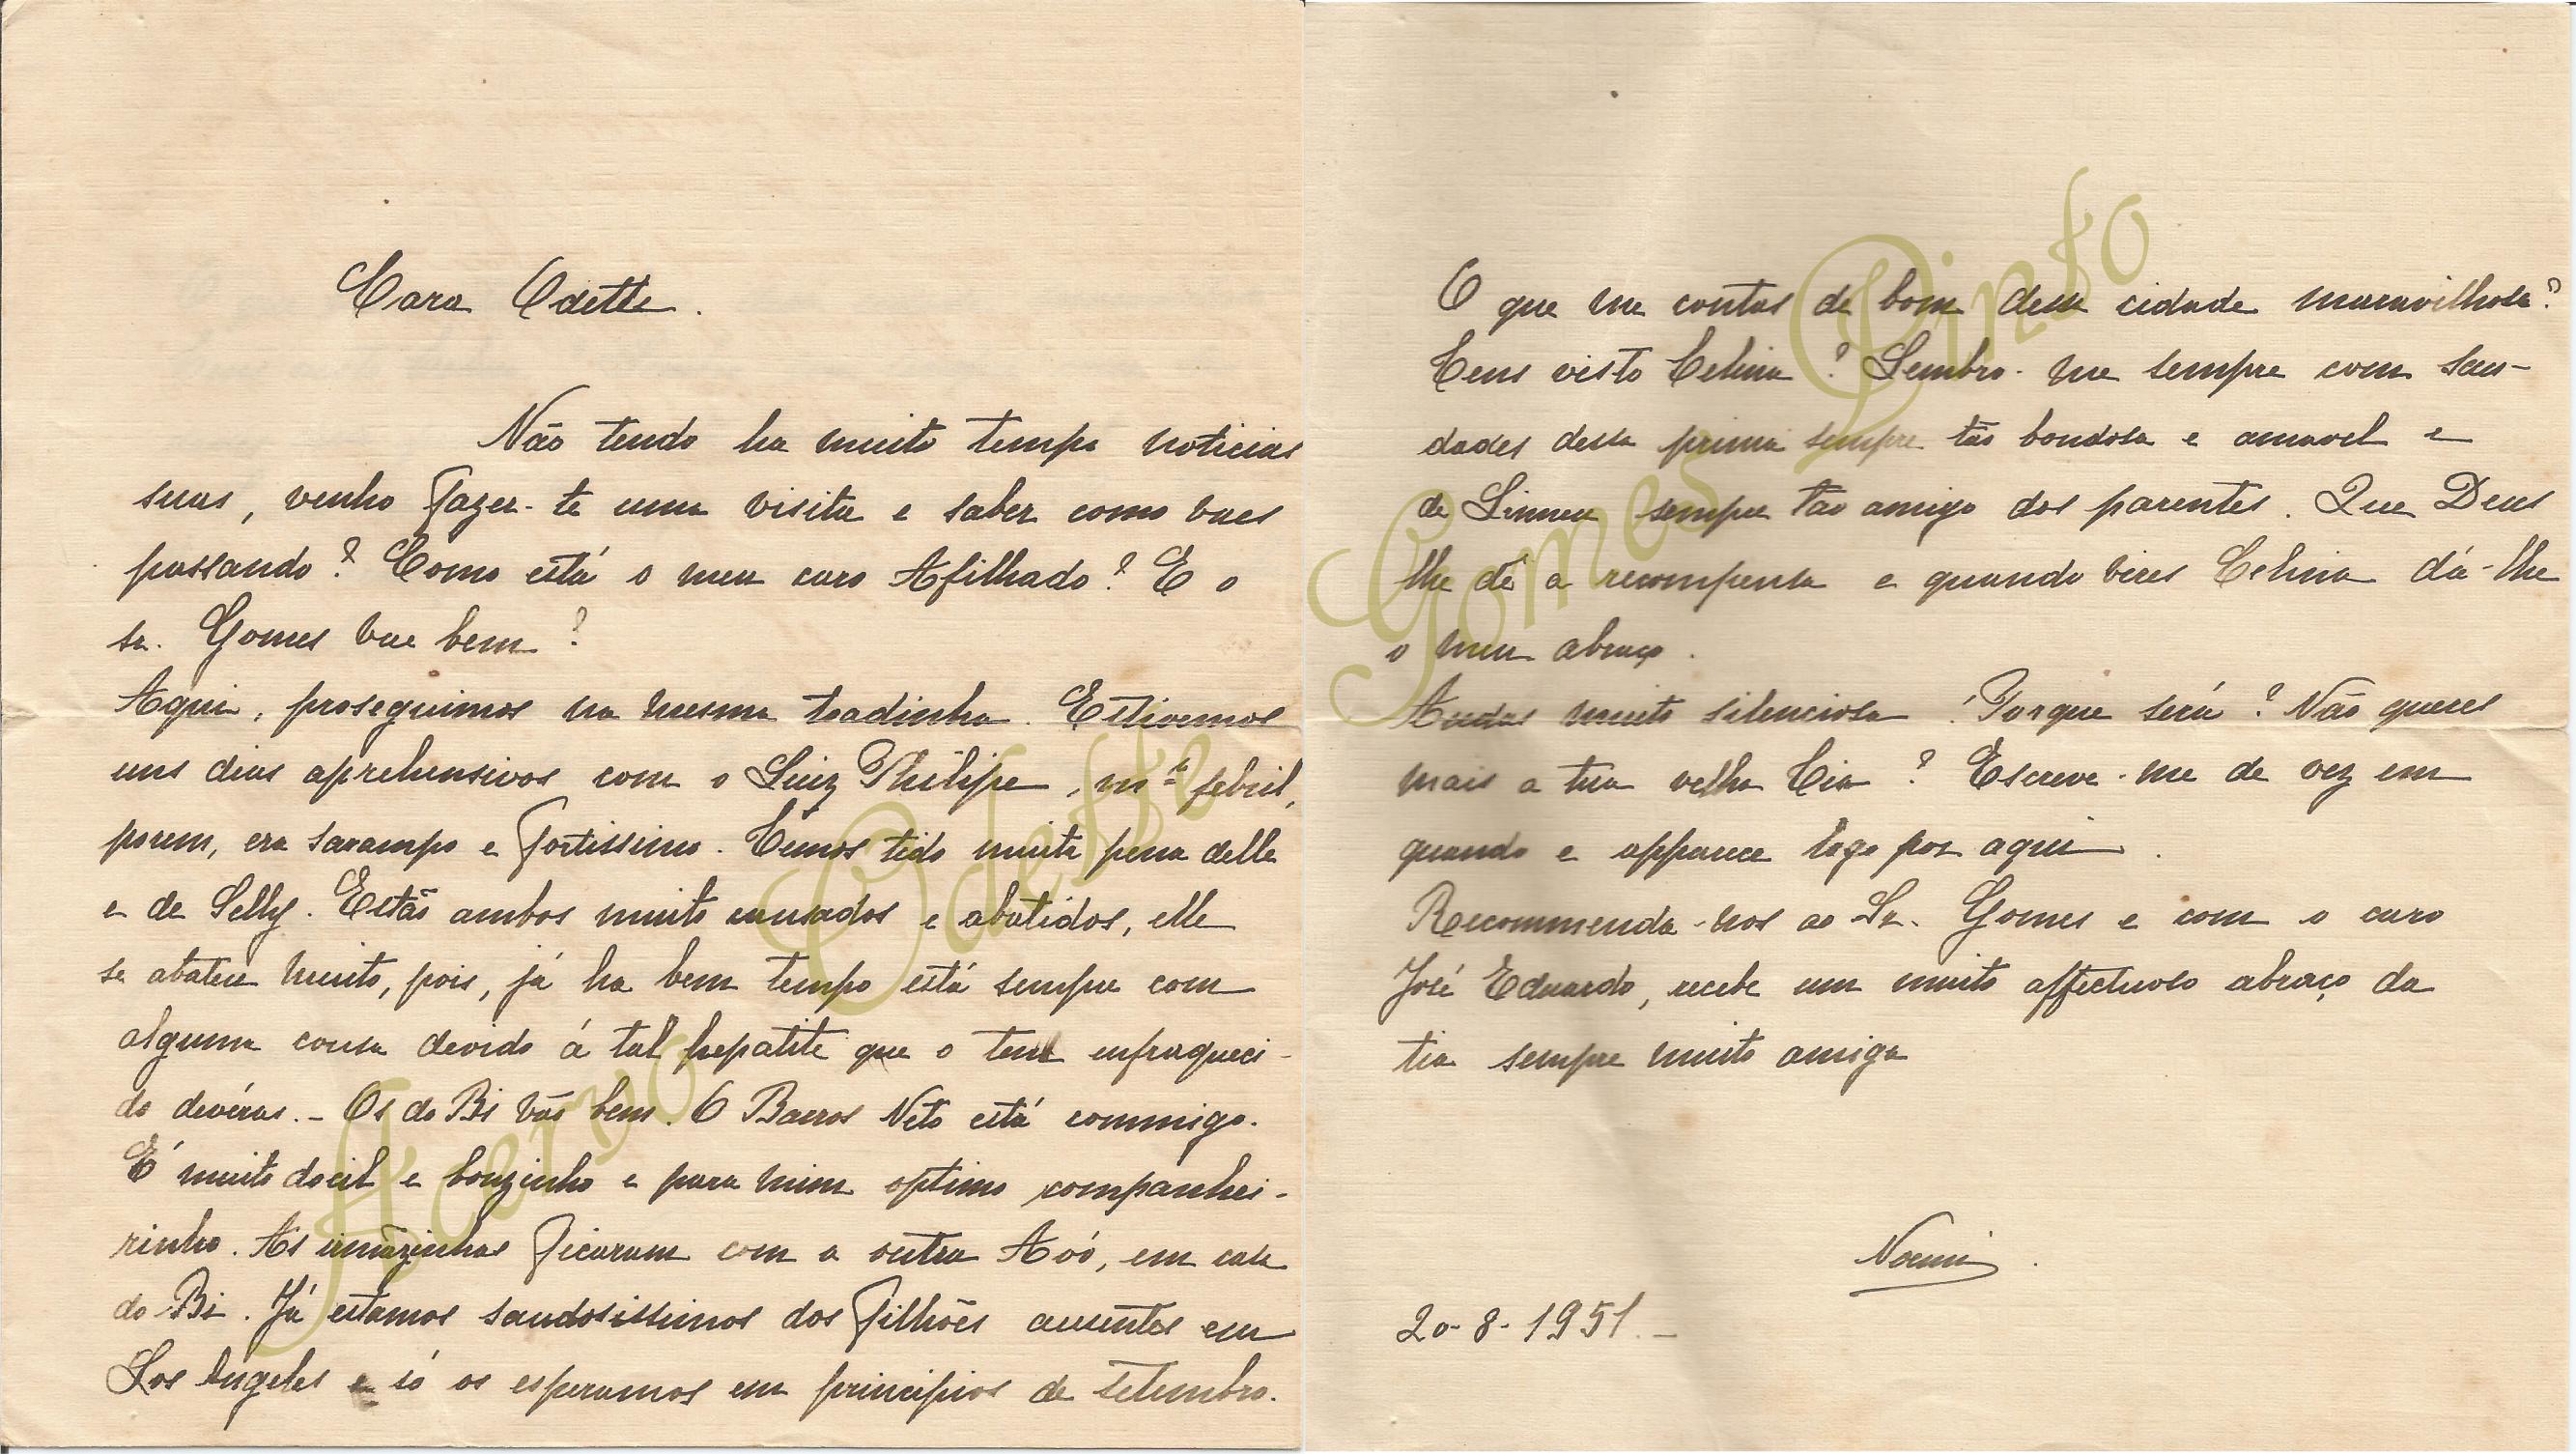 Cara Odette.
Não tendo ha muito tempo noticias
suas, venho fazer-te uma visita e saber como vaes
passando? Como está o meu caro Afilhado? E o
sr. Gomes vae bem?
Aqui, proseguimos na mesma toadinha. Estivemos
uns dias aprehensivos com o Luiz Philipe, mto febril,
porem, era sarampo e fortissimo. Temos tido muita pena delle
e de Selly. Estão ambos muito cansados e abatidos, elle
se abateu muito, pois, já ha bem tempo está sempre com
alguma cousa devido á tal hepatite que o tem enfraqueci-
do devéras. - Os do Bi vão bem. O Barros Neto está commigo.
É muito docil e bonzinho e para mim optimo companhei-
rinho. As irmãzinhas ficaram com a outra Avó, em casa
do Bi. Já estamos saudosissimos dos filhões ausentes em
Los Angeles e só os esperamos em principios de setembro.
O que me contas de bom dessa cidade maravilhosa?
Tens visto Celina? Lembro-me sempre com sau-
dades dessa prima sempre tão bondosa e amavel e
de Linneu sempre tão amigo dos parentes. Que Deus
lhe dê a recompensa e quando vires Celina dá-lhe
o meu abraço.
Andas muito silenciosa! Porque será? Não queres
mais a tua velha Tia? Escreve-me de vez em
quando e apparece logo por aqui.
Recommenda-nos ao Sr. Gomes e com o caro
José Eduardo, recebe um muito affectuoso abraço da
tia sempre muito amiga
Noemi.
20-8-1951.-
Acervo Odette Gomes Pinto